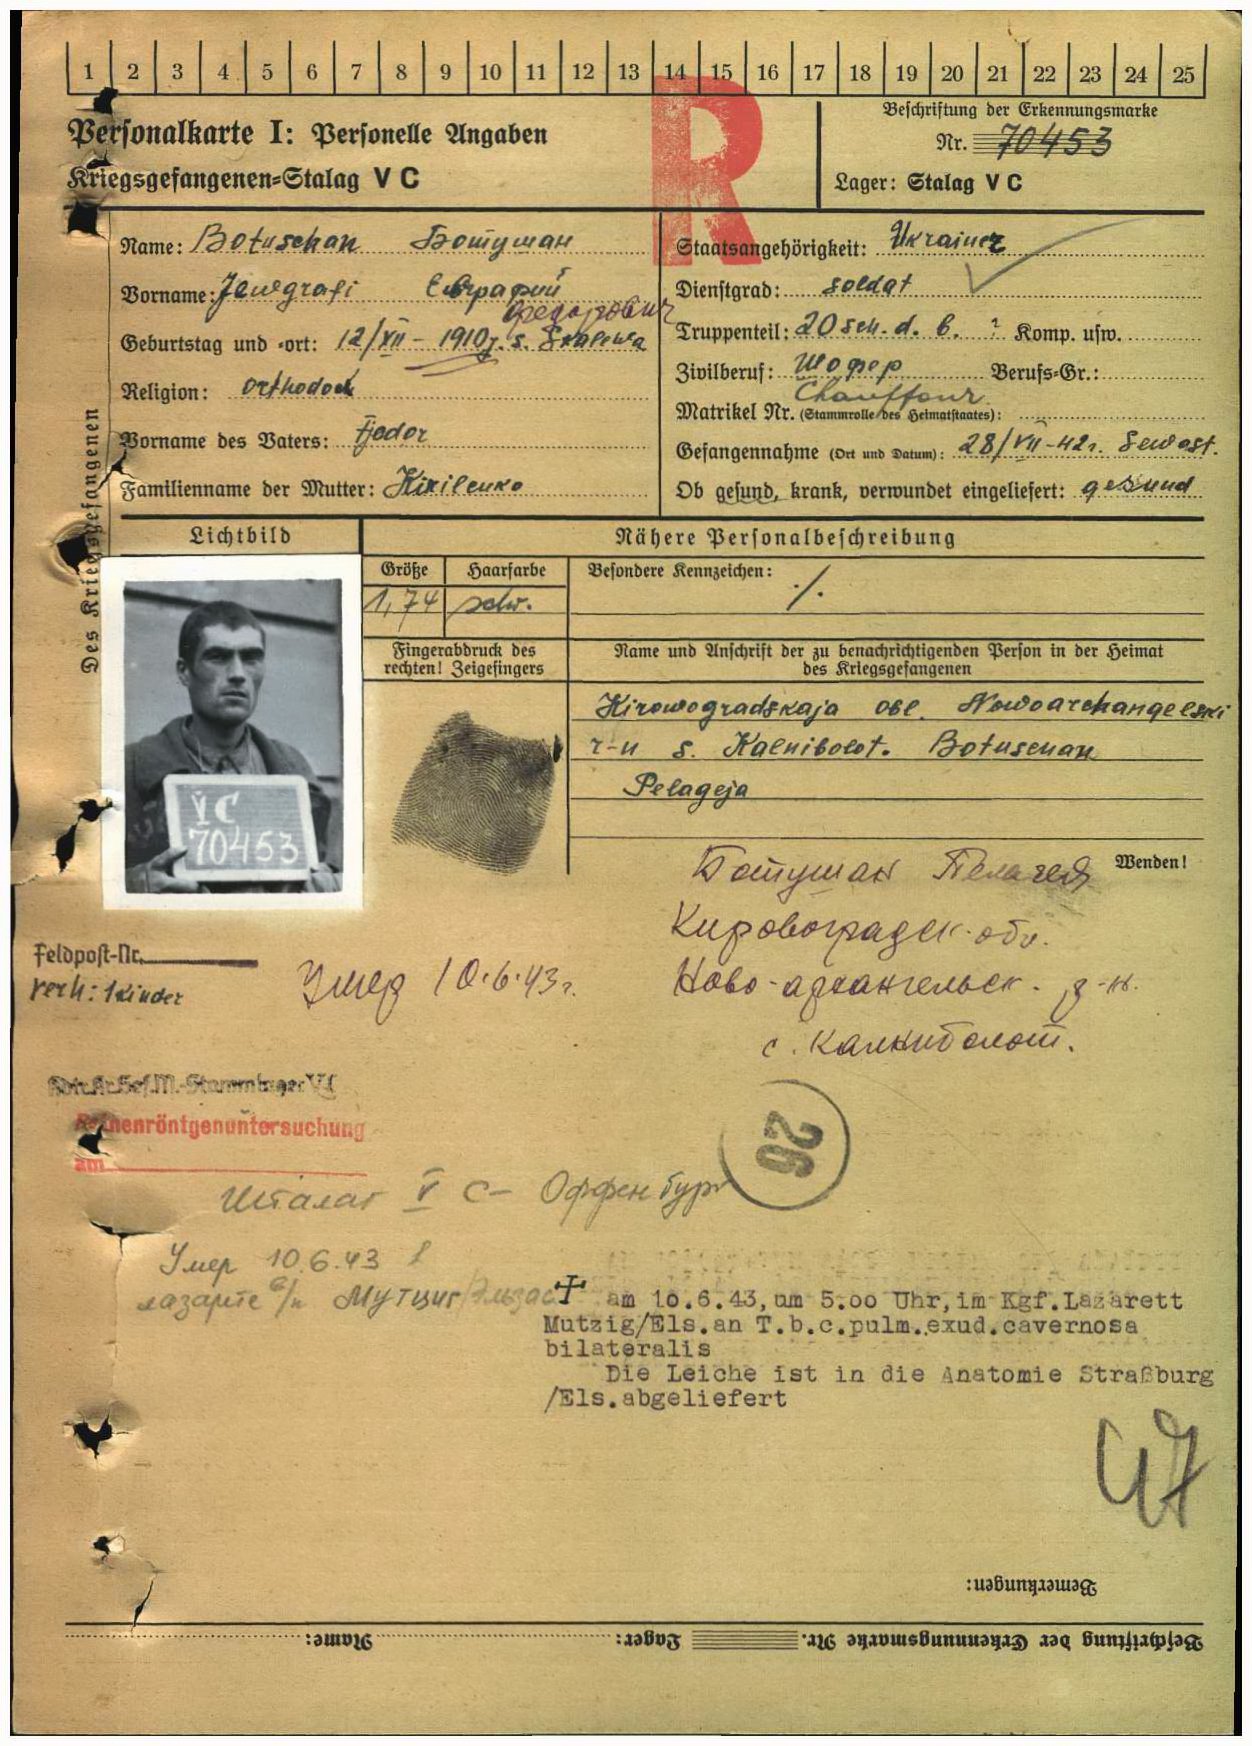 1 2 3 4 5 6 7 8 9 10 11 12 13 14 15 16 17 18 19 20 21 22 23 24 25
Personalkarte I: Personelle Angaben
Kriegsgefangenen-Stalag V C
R
Beschriftung der Erkennungsmarke
Nr. 70453
Lager: Stalag V C
Des Kriegsgefangenen
Name: Botuschan Ботушан
Vorname: Jewgrafi Евграфий
Федорович
Geburtstag und -ort: 12/XII - 1910 s.
Religion: orthodox
Vorname des Vaters: Fjedor
Familienname der Mutter: Kirilenko
Staatsangehörigkeit: Ukrainer
Dienstgrad: Soldat
Truppenteil: 20 sch. d. b. ? Komp. usw.
Zivilberuf: Шофер Berufs-Gr.:
Chauffour
Matrikel Nr. (Stammrolle des Heimatstaates):
Gefangennahme (Ort und Datum): 28/VII-42 г. Sewast.
Ob gesund, krank, verwundet eingeliefert: gesund
Lichtbild
Nähere Personalbeschreibung
Größe Haarfarbe
1,74 schw.
Besondere Kennzeichen: ./.
Fingerabdruck des
rechten! Zeigefingers
Name und Anschrift der zu benachrichtigenden Person in der Heimat
des Kriegsgefangenen
Kirowogradskaja obl. Nowoarchangelski
r-n s. Kalnibolot. Botuschan
Pelageja
V C
70453
Wenden!
Ботушан Пелагея
Кировоградск. обл.
Ново-архангельск. р-н.
с. Калниболот.
Feldpost-Nr.
verh: 1 Kinder
Умер 10.6.43 г.
Stammlager V C
Reihenröntgenuntersuchung
am
26
Шталаг V C - Оффенбург
Умер 10.6.43 в
лазарете в/п Мутциг/Эльзас
am 10.6.43, um 5.00 Uhr, im Kgf.Lazarett
Mutzig/Els.an T.b.c.pulm.exud.cavernosa
bilateralis
Die Leiche ist in die Anatomie Straßburg
/Els.abgeliefert
Bemerkungen:
Beschriftung der Erkennungsmarke Nr. Lager: Name: